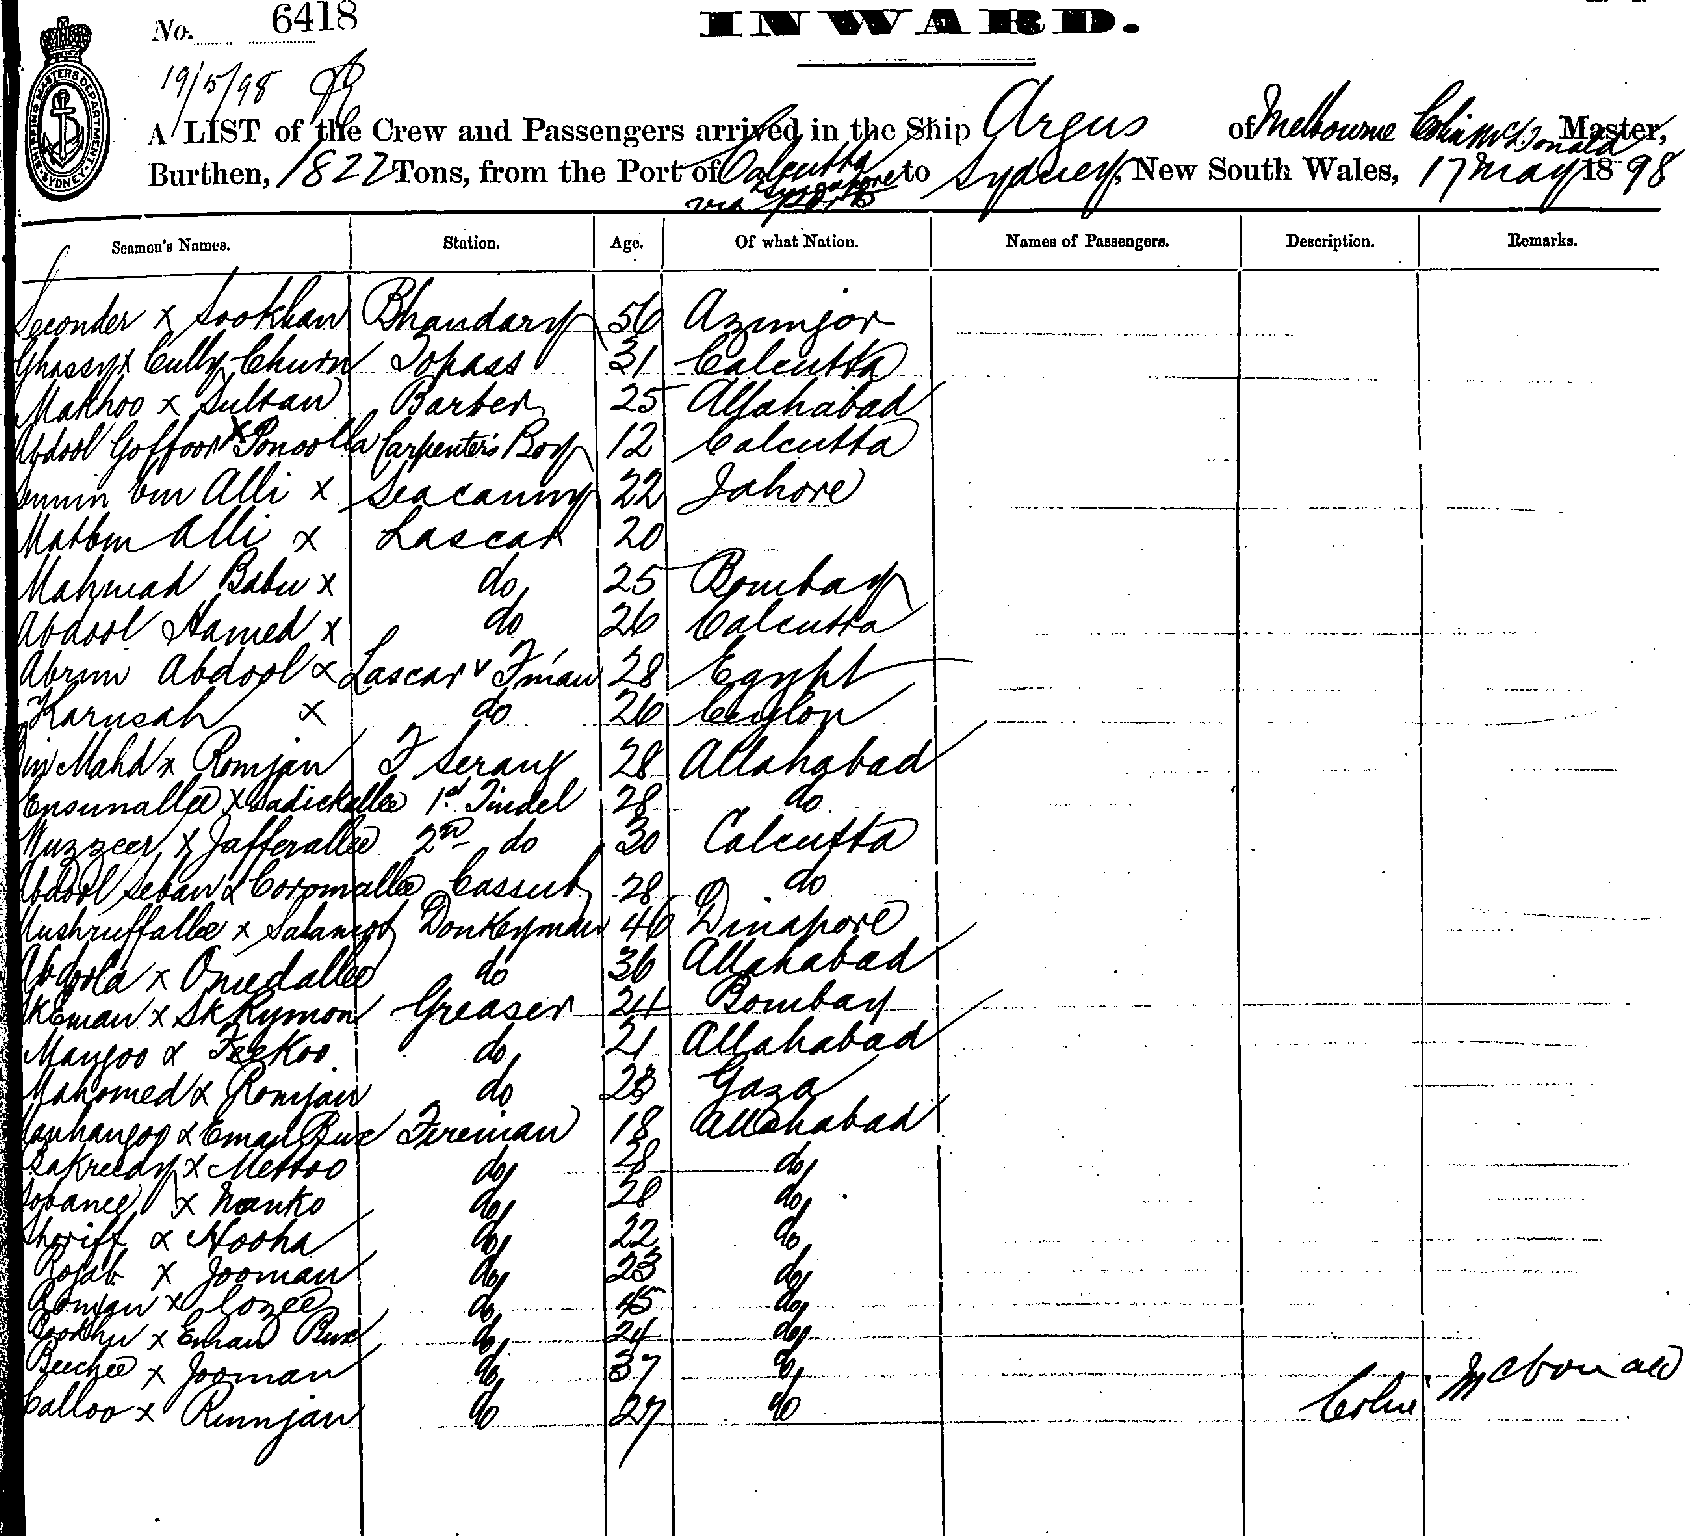 No. 6418
INWARD.
SHIPPING MASTERS DEPARTMENT SYDNEY
19/5/98
A LIST of the Crew and Passengers arrived in the Ship Argus of Melbourne Colin McDonald Master,
Burthen, 1822 Tons, from the Port of Calcutta to Sydney, New South Wales, 17 May 1898
via Singapore ports
Seamen's Names. Station. Age. Of what Nation. Names of Passengers. Description. Remarks.
Seconder x Sookhan Bhandary 56 Azimjor
Ghassy x Cully Churn Topass 31 Calcutta
Makhoo x Sultan Barber 25 Allahabad
Abdool Goffoor x Ponoolla Carpenter's Boy 12 Calcutta
bin Alli x Seacunny 22 Johore
Matbin Alli x Lascar 20
Mahmad Babu x do 25 Bombay
Abdool Hamed x do 26 Calcutta
Abrim Abdool x Lascar & F'man 28 Egypt
Karusah x do 26 Ceylon
Mahd x Romjan F Serang 28 Allahabad
Ensunallee x Sadickallee 1st Tindel 28 do
Muzzeer x Jafferallee 2nd do 30 Calcutta
Abdool Seban x Coromallee Cassub 28 do
Mushruffallee x Salamot Donkeyman 46 Dinapore
Abdola x Omedallee do 36 Allahabad
Sk Eman x Sk Rymon Greaser 24 Bombay
Mangoo x Feekoo do 21 Allahabad
Mahomed x Romjan do 28 Gaza
x Eman Bux Fireman 18 Allahabad
Bakreedy x Mettoo do 28 do
Sobanee x Nanko do 28 do
Shoriff x Nooha do 22 do
Rojab x Jooman do 23 do
Romjan x Cozee do 45 do
x Eman Bux do 24 do
Beechee x Jooman do 37 do
Calloo x Rumjan do 27 do
Colin McDonald